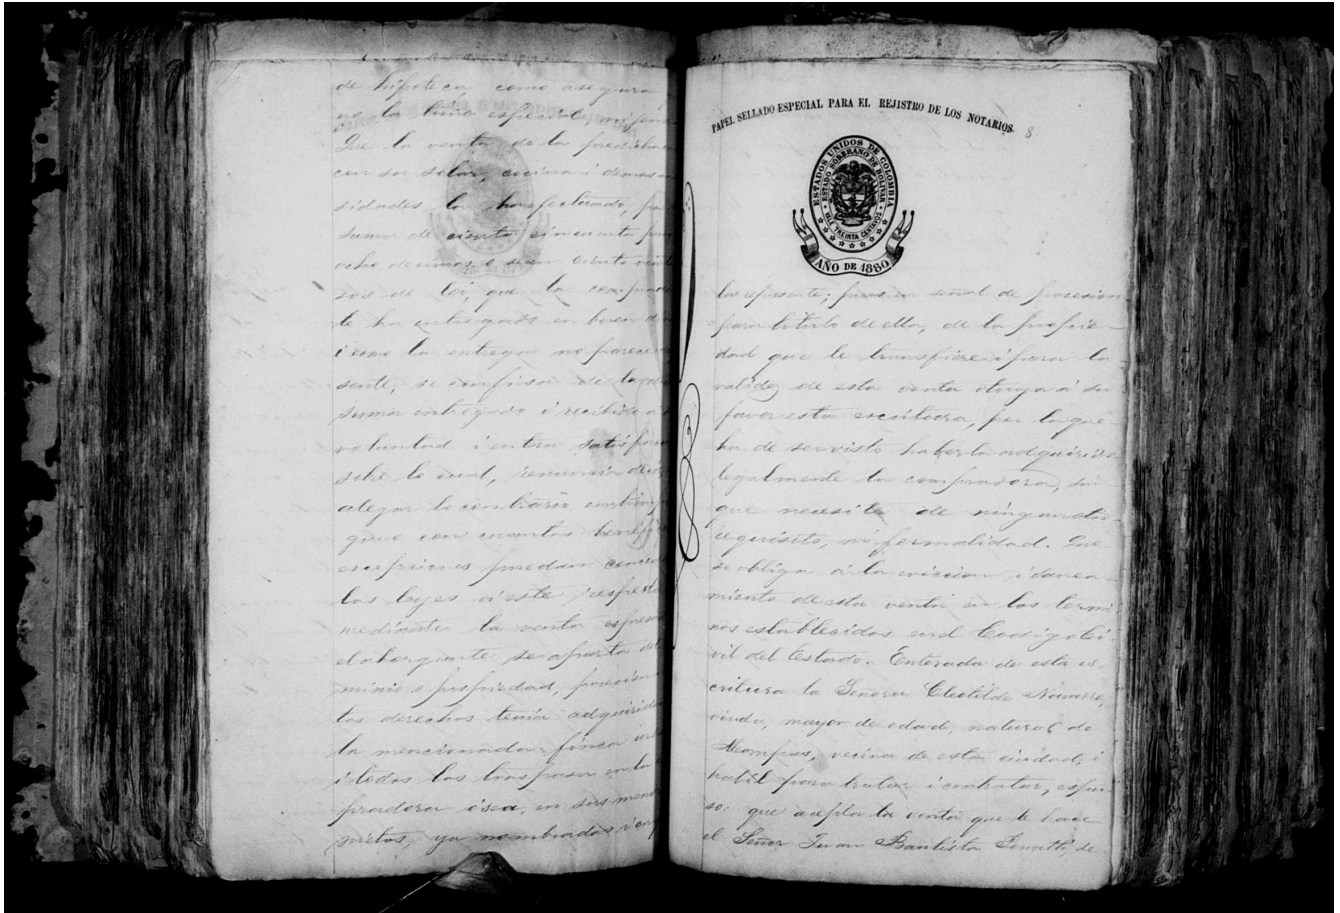 de hipoteca como asegura
no la tiene especial, ni jene
Que la venta de la predicha
con su solar, cocina i demas
sidades la ha efectuado, por
suma de ciento cincuenta
ocho decimos o sean ciento veinte
sos de lei, que la comprado
te ha entregado en buena
i como la entrega no parece
sente, se confiesa de la
suma entregada i recibida a
voluntad i entera satisfac
sobre lo cual, renuncia
alegar lo contrario
que con cuantos benefi
escepciones puedan
las leyes a este respecto
mediante la venta espresa
el otorgante se aparta del
minio o propiedad, posecion
tos derechos tenia adquiridos
la mencionada finca
i todos los traspasa en la
pradora ósea, en sus meno
nietos, ya nombrados i
PAPEL SELLADO ESPECIAL PARA EL REJISTRO DE LOS NOTARIOS.
8
ESTADOS UNIDOS DE COLOMBIA
ESTADO SOBERANO DE BOLIVAR
VALE TREINTA CENTAVOS
AÑO DE 1880
los represente; pues en señal de posesion
para título de ella, de la propie
dad que le transfiere i para la
validez de esta venta otorga á su
favor esta escritura, por la que
ha de ser visto haberla adquirido
legalmente la compradora, sin
que necesite de ningun otro
requisito, ni formalidad. Que
se obliga á la eviccion i sanea
miento de esta venta en los termi
nos establecidos en el Codigo Ci
vil del Estado. Enterada de esta es
critura la Señora Cleotilde Navarro,
viuda, mayor de edad, natural de
Mompos, vecina de esta ciudad, i
habil para tratar i contratar, espu
so: que acepta la venta que le hace
el Señor Juan Bautista de